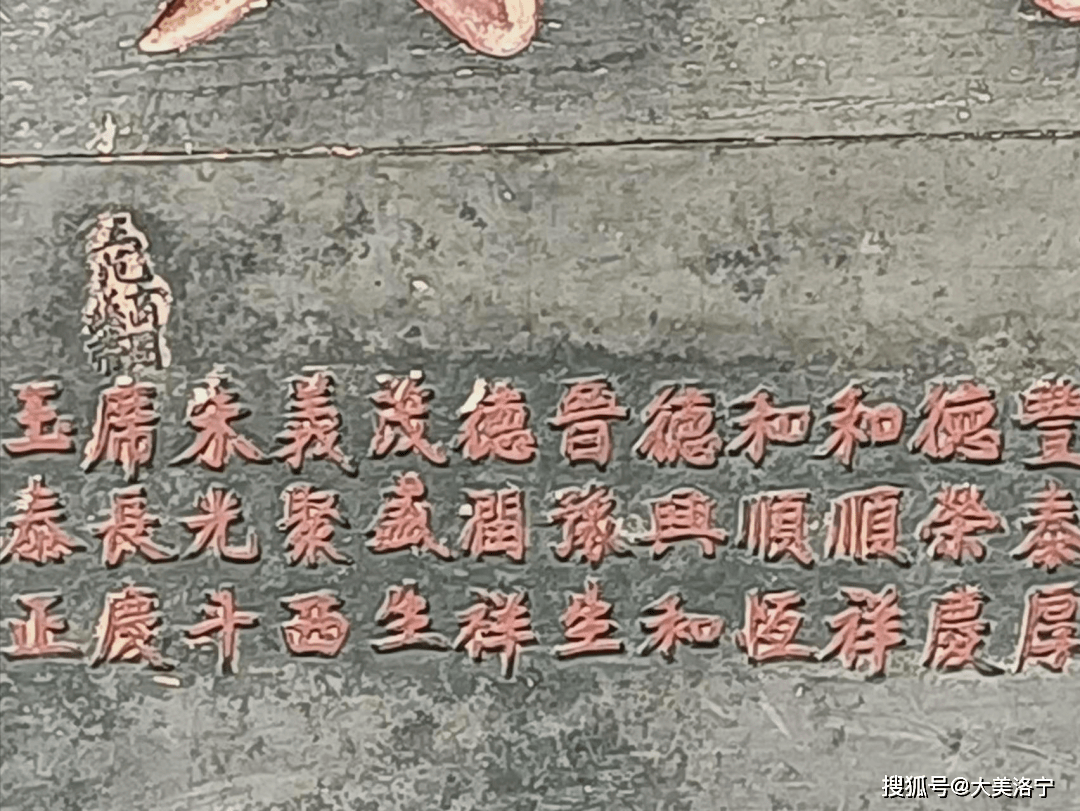 豐泰厚
德榮慶
和順祥
和順恆
德興和
晉豫生
德潤祥
茂盛生
義聚西
朱光斗
席長慶
玉泰正
搜狐号@大美洛宁